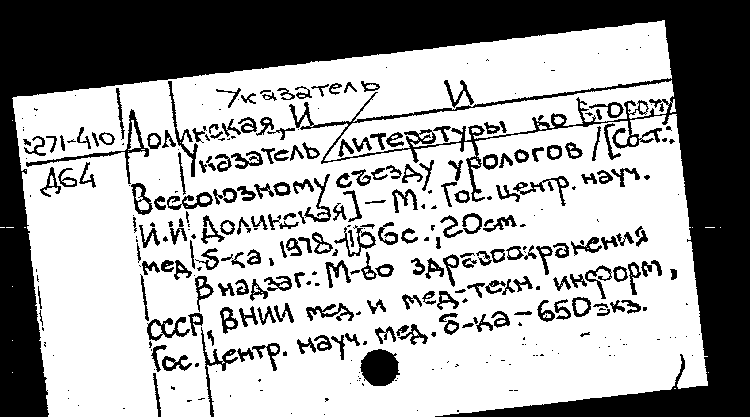 Указатель И
271-410 Долинская, И
Д64 Указатель литературы ко Второму
Всесоюзному съезду урологов / [Сост.:
И.И. Долинская] – М.: Гос. центр. науч.
мед. б-ка, 1978. – 56с.; 20см.
В надзаг.: М-во здравоохранения
СССР, ВНИИ мед. и мед.-техн. информ,
Гос. центр. науч. мед. б-ка. – 650экз.